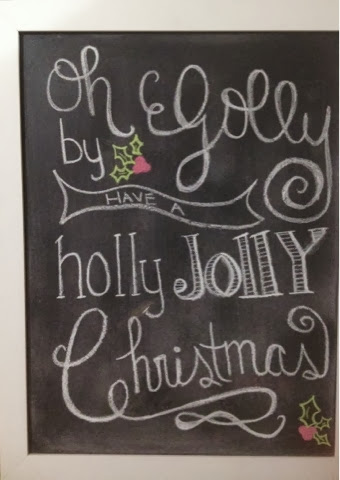 Oh Golly
by
HAVE A
holly JOLLY
Christmas